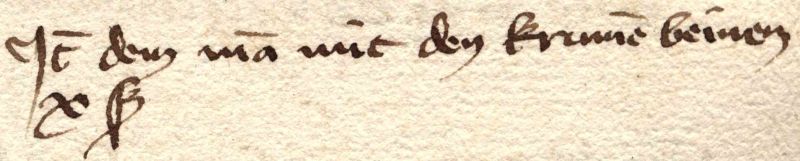 It̄ dem mā mit den krumē beinen
x ß